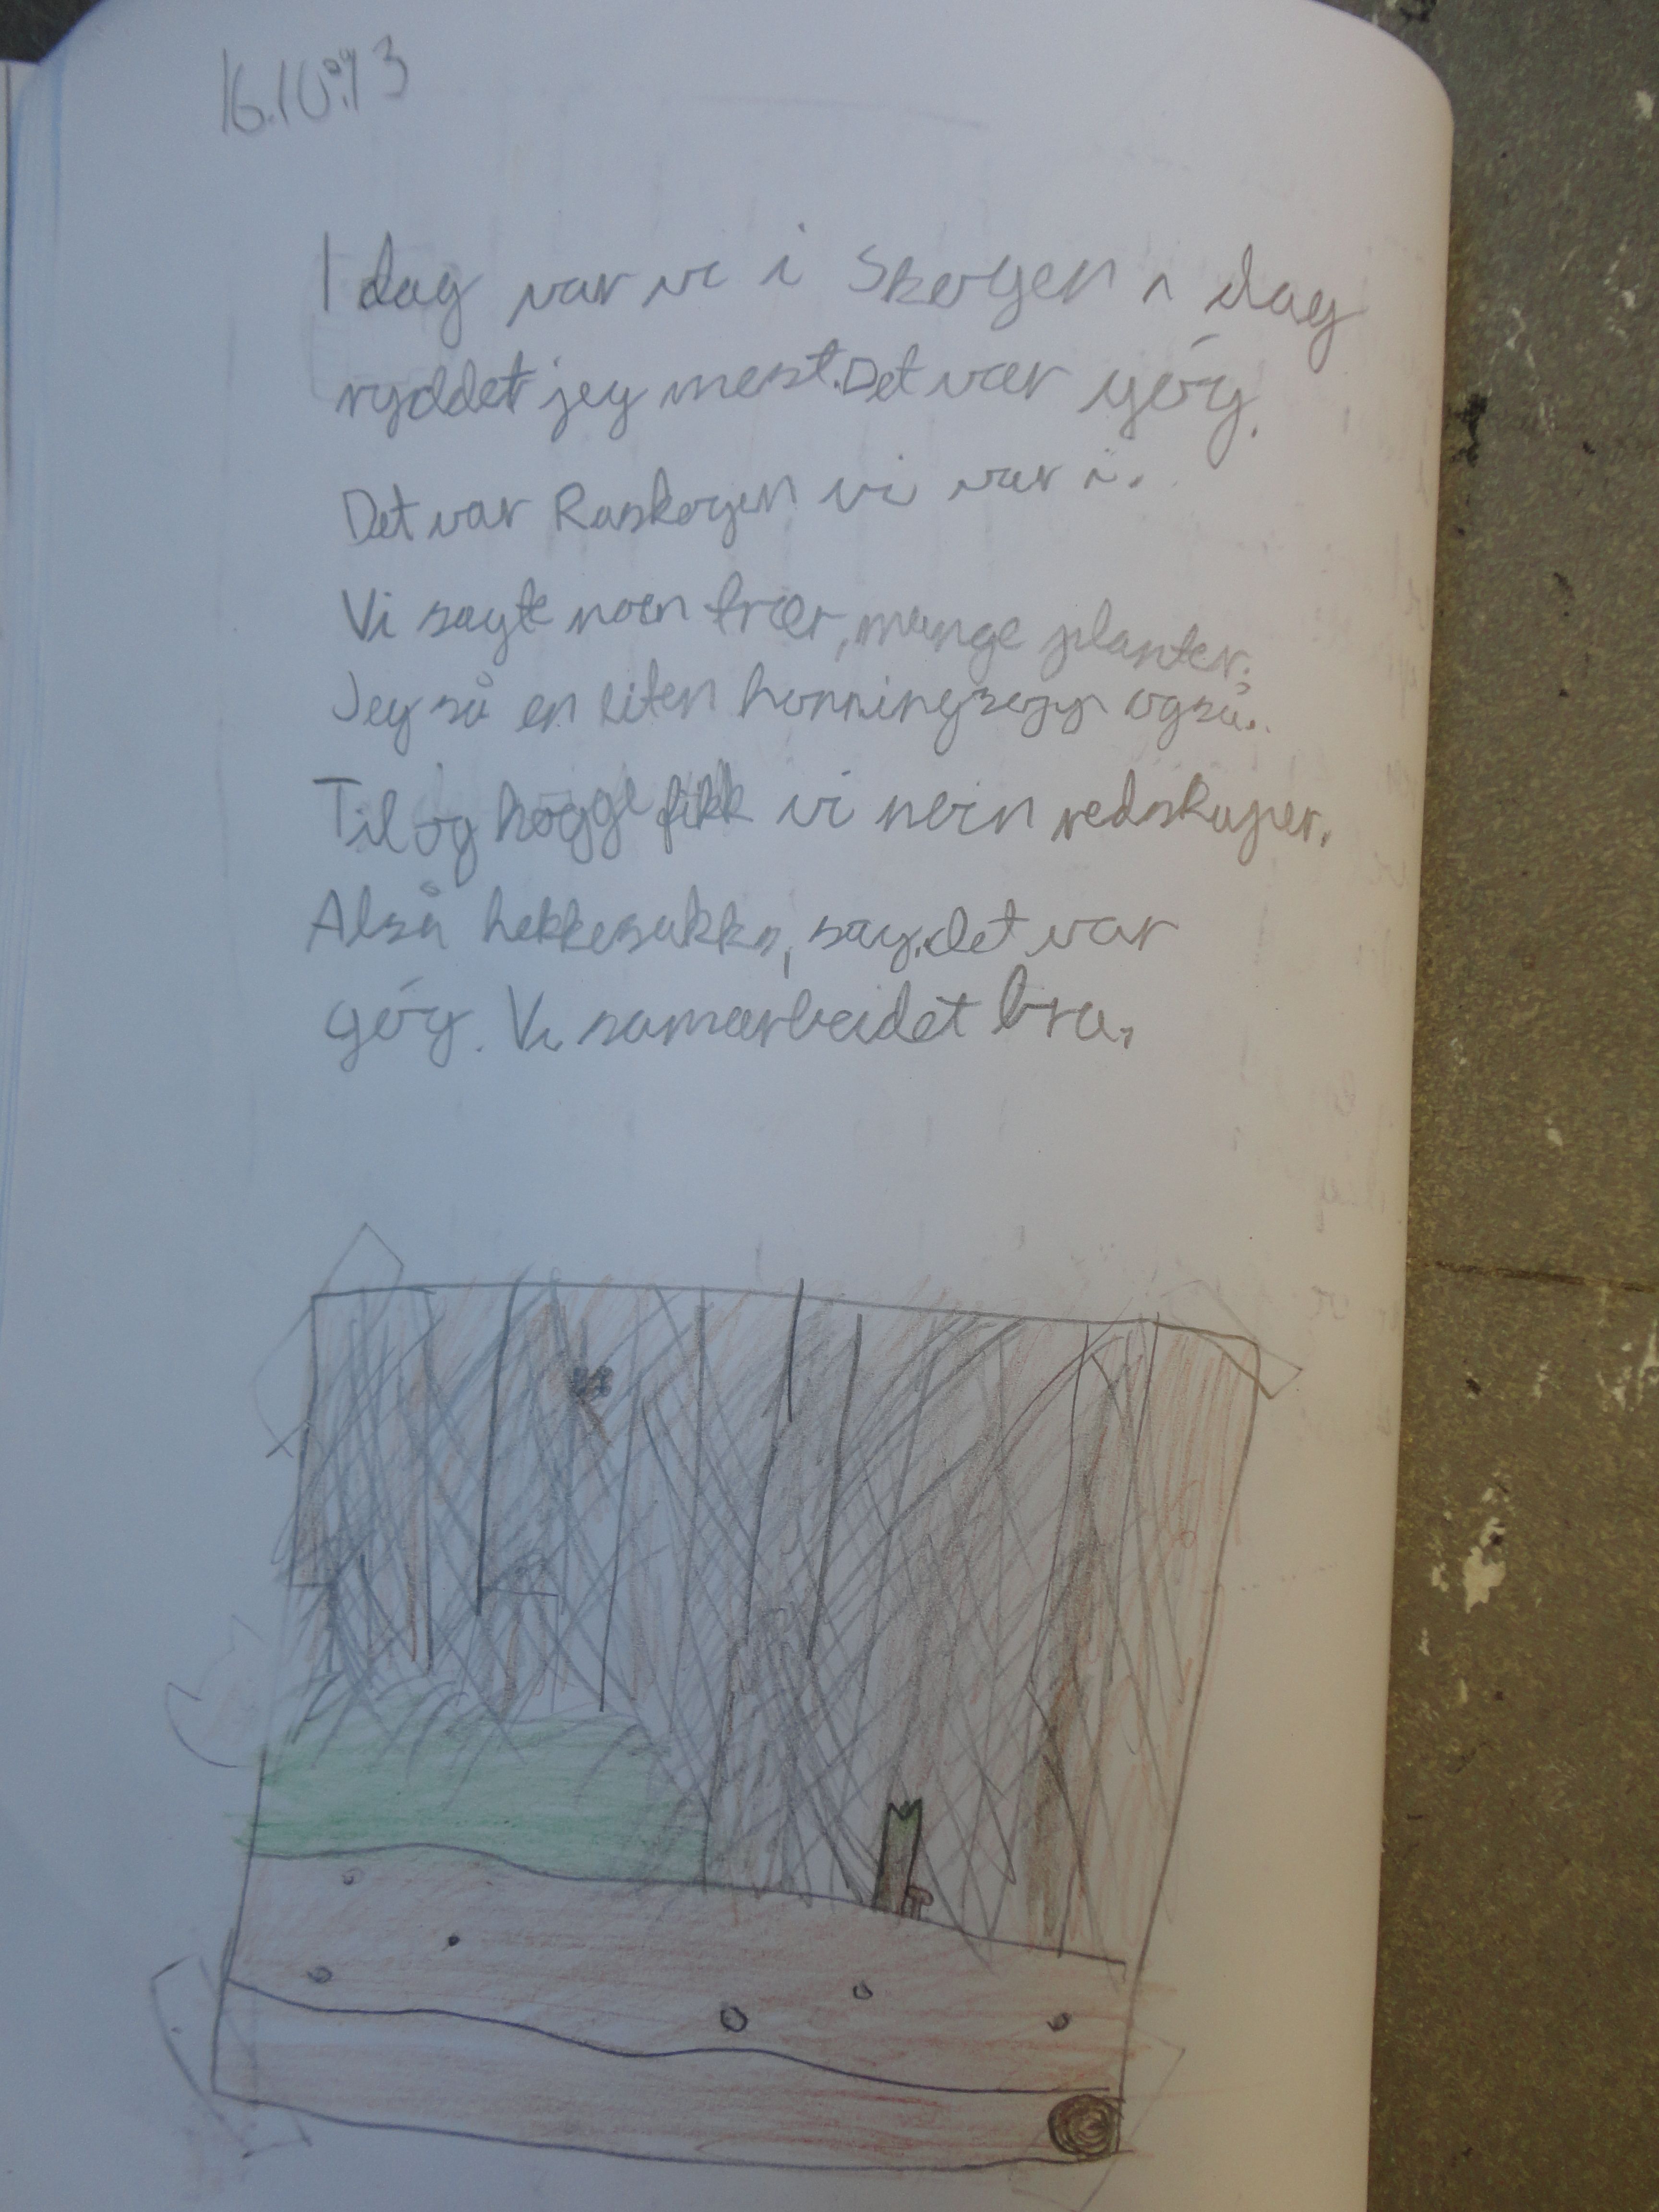 16.10.13
I dag var vi i Skogen i dag
ryddet jeg mest. Det var gøy.
Det var Raskogen vi var i.
Vi sagte noen trær, mange planter.
Jey så en liten honningsopp også.
Til og hogge fikk vi noen redskaper.
Alså hekkesakks, sag. det var
gøy. Vi samarbeidet bra.